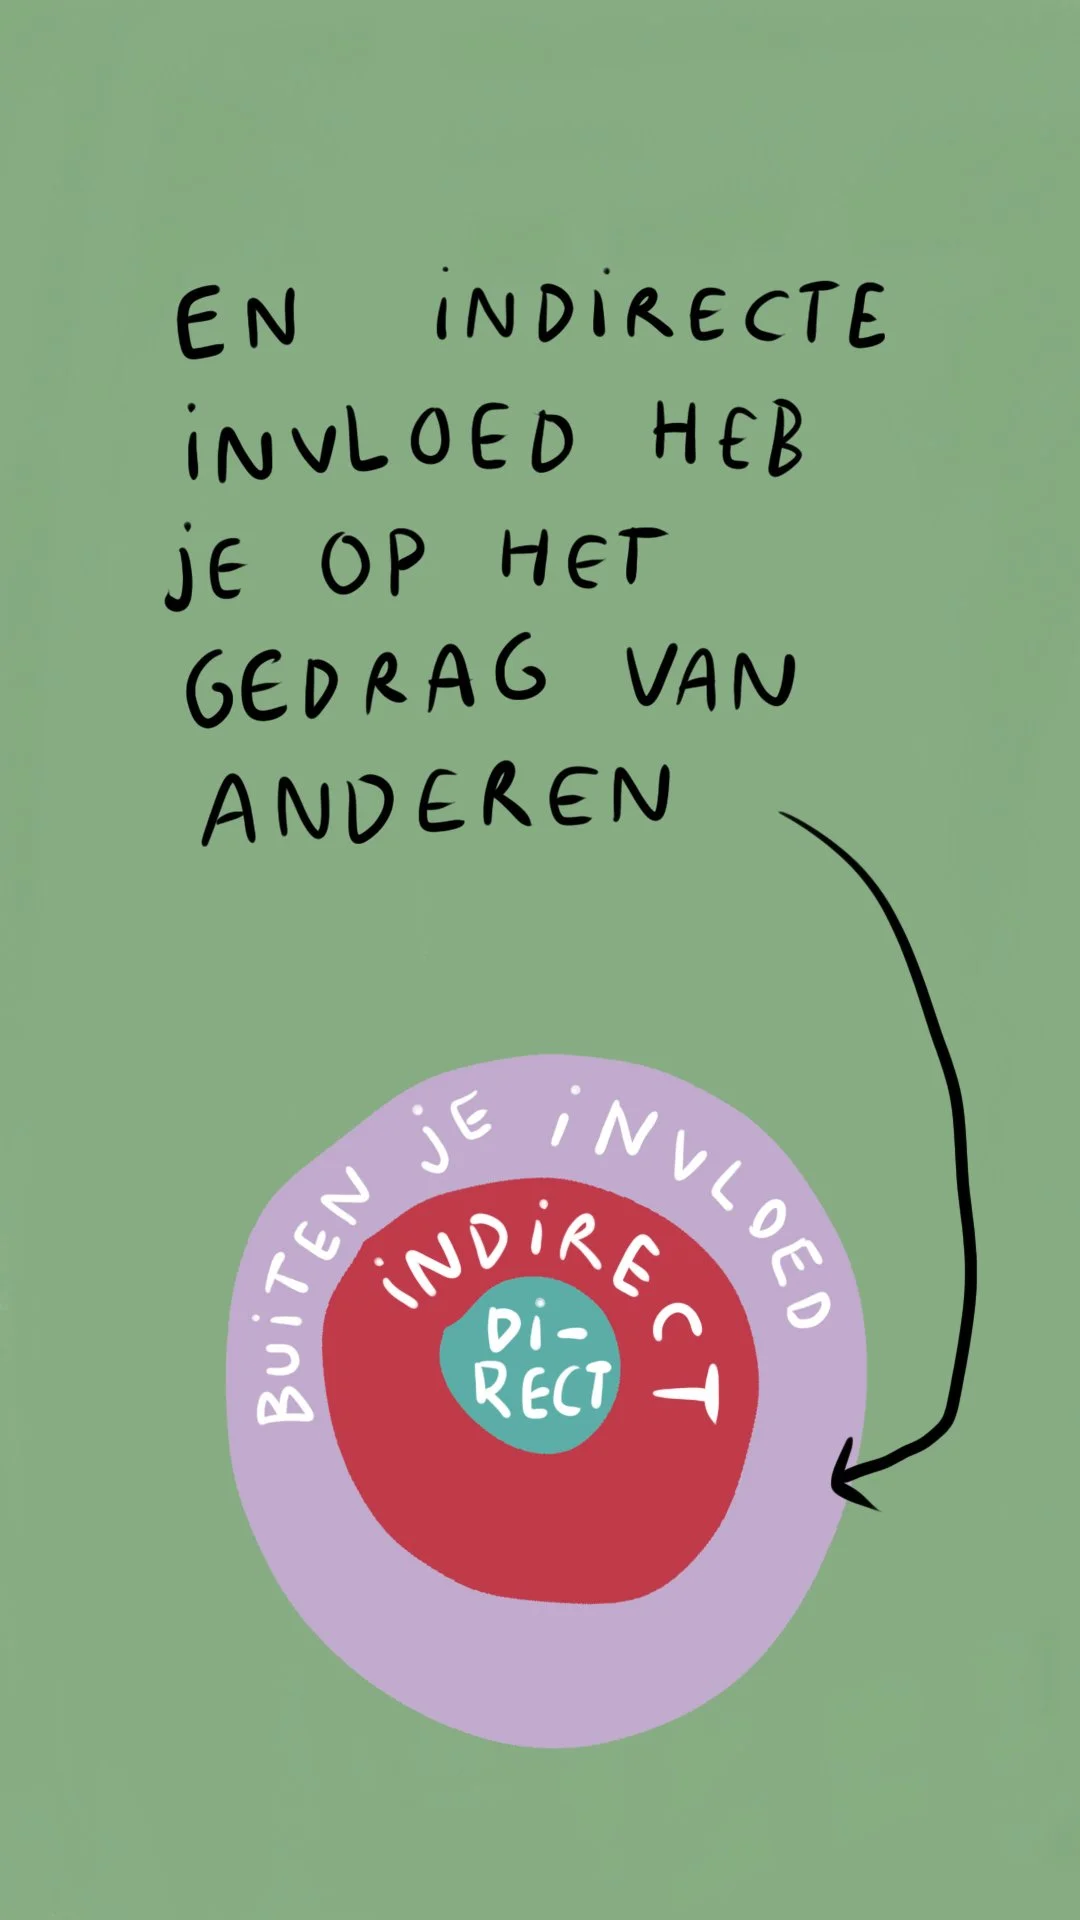 EN INDIRECTE
INVLOED HEB
JE OP HET
GEDRAG VAN
ANDEREN
BUITEN JE INVLOED
INDIRECT
DI-
RECT